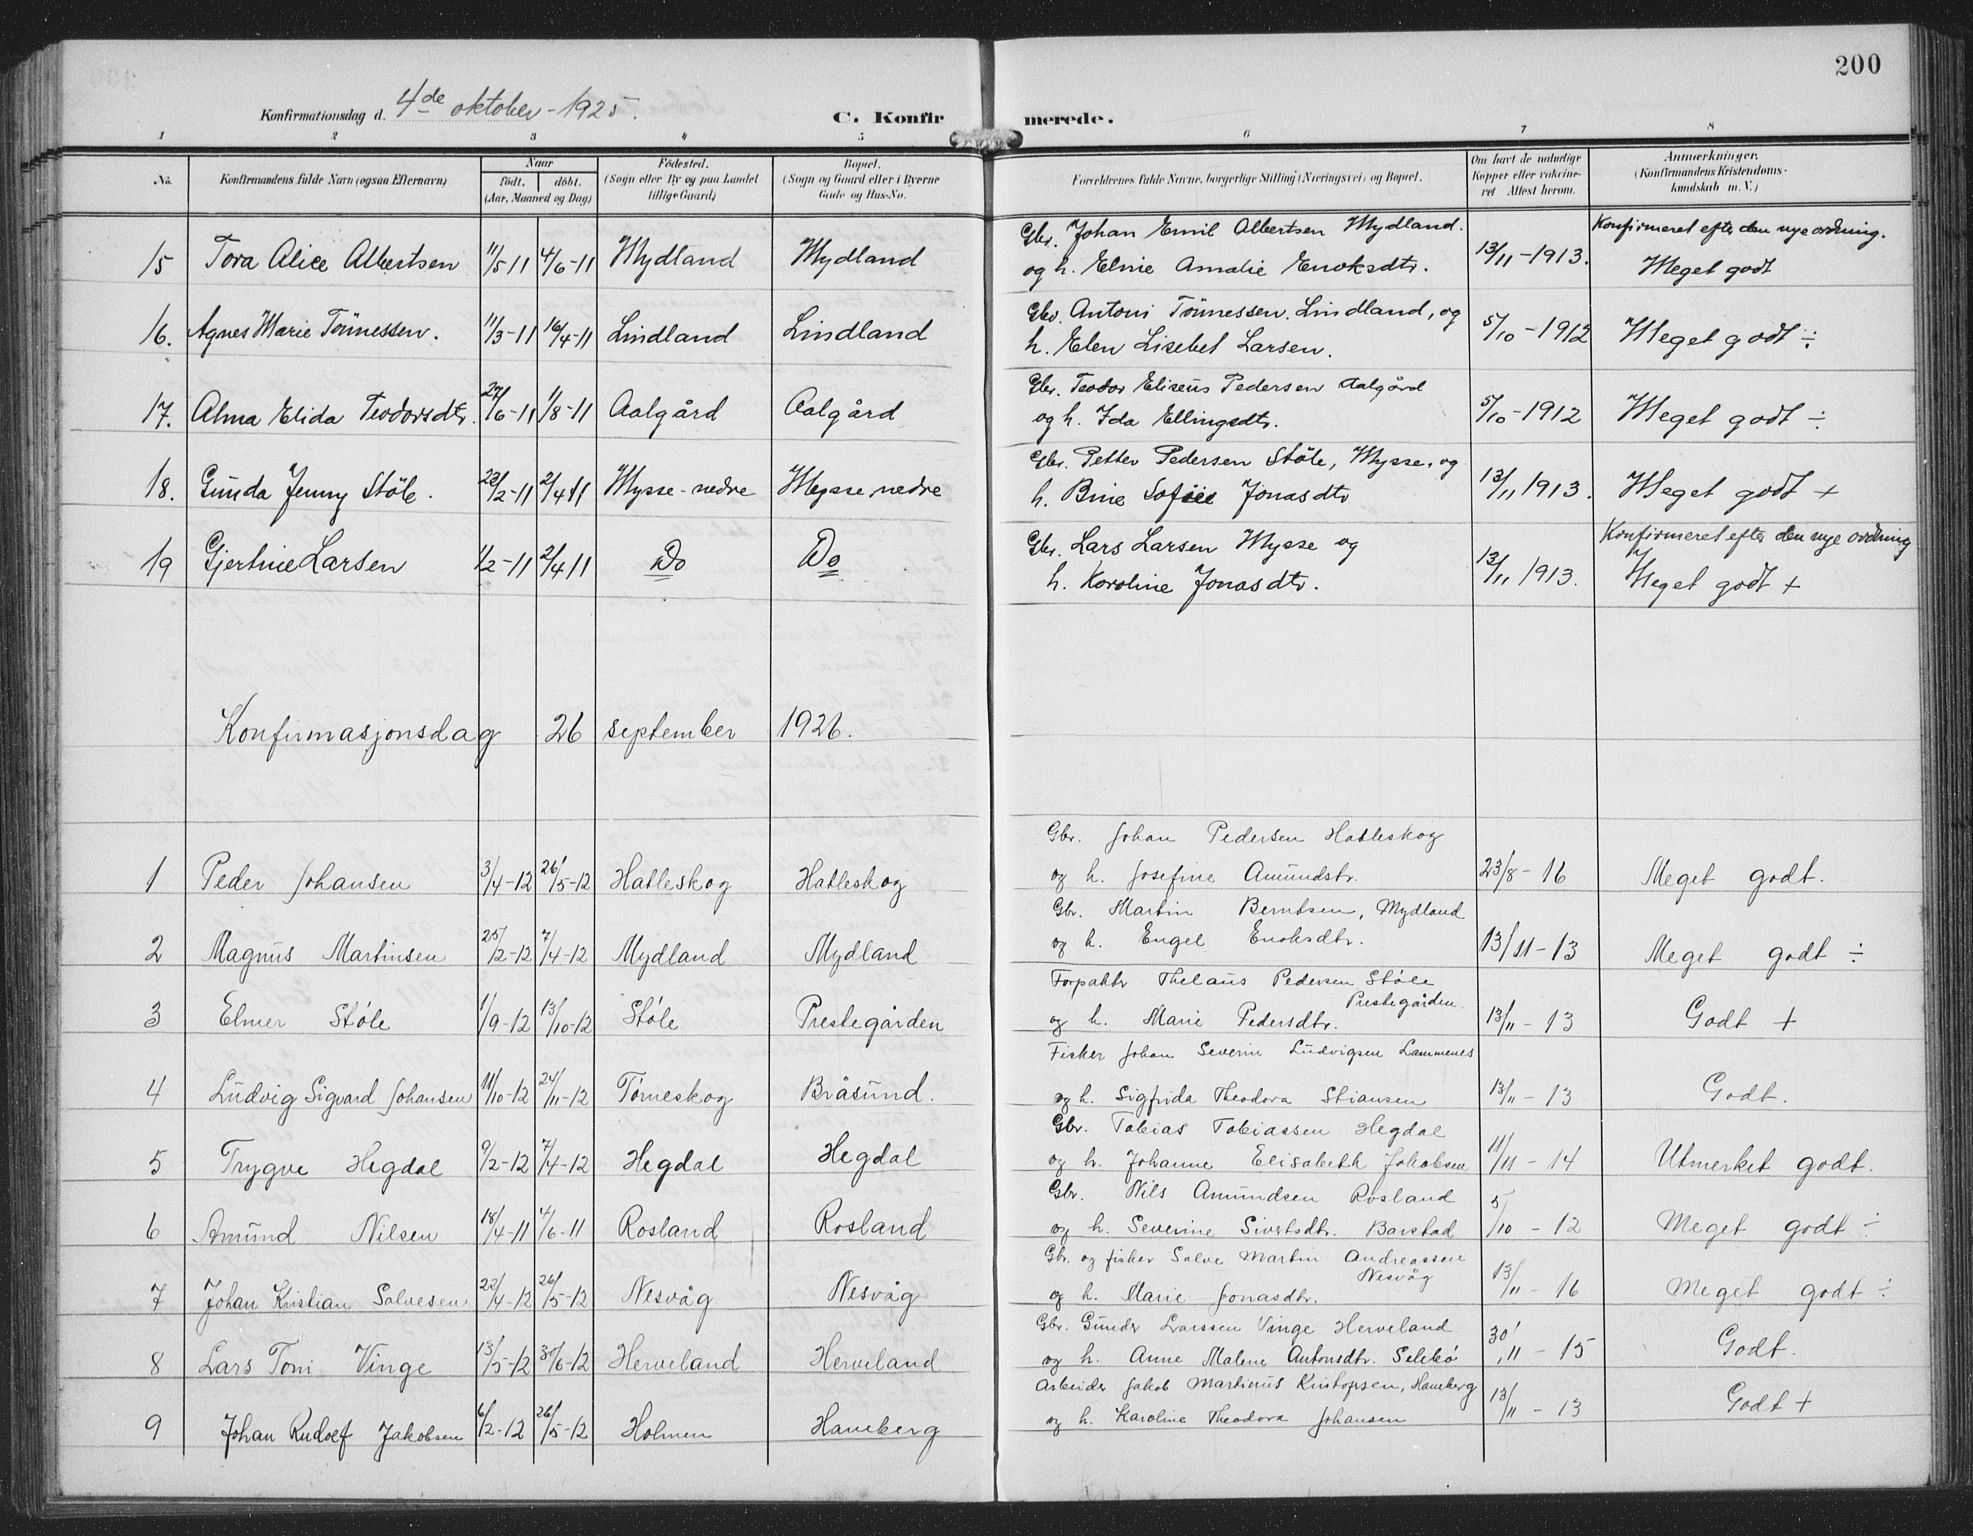 200
Konfirmationsdag d. 4de oktober - 1925.
C. Konfirmerede.
1 2 3 4 5 6 7 8
No. Konfirmandens fulde Navn (ogsaa Efternavn)
Naar født. døbt. (Aar, Maaned og Dag)
Fødested. (Sogn eller By og paa Landet tillige Gaard)
Bopæl. (Sogn og Gaard eller i Byerne Gade og Hus-No.
Forældrenes fulde Navne, borgerlige Stilling (Næringsvei) og Bopæl.
Om havt de naturlige Kopper eller vaccineret Attest herom.
Anmærkninger. (Konfirmandens Kristendomskundskab m. V.)
Gbr. Johan Emil Albertsen Mydland. Konfirmeret efter den nye ordning.
15 Tora Alice Albertsen 11/5 11 4/6-11 Mydland Mydland og h. Eline Amalie Enoksdtr. 13/11-1913. Meget godt
Gbr. Antoni Tönnessen Lindland, og
16. Agnes Marie Tönnessen. 11/3-11 16/4-11 Lindland Lindland h. Elen Lisebet Larsen. 5/10-1912 Meget godt ÷
Gbr. Teodor Eliseus Pedersen Aalgård
17. Alma Elida Teodorsdtr. 27/6-11 1/8-11 Aalgård Aalgård og h. Ida Ellingsdtr. 5/10-1912 Meget godt ÷
Gbr. Petter Pedersen Støle, Mysse, og
18. Gunda Jenny Støle. 22/2-11 2/4 11 Mysse-nedre Mysse nedre h. Bine Sofie Jonasdtr 13/11 1913. Meget godt +
Gbr. Lars Larsen Mysse og Konfirmeret efter den nye ordning
19 Gjertine Larsen 1/2-11 2/4 11 Do Do h. Karoline Jonasdtr. 13/11 1913. Meget godt +
Konfirmasjonsdag 26 september 1926.
Gbr. Johan Pedersen Hatleskog
1 Peder Johansen 3/4-12 26/5-12 Hatleskog Hatleskog og h. Josefine Amundstr. 23/8-16 Meget godt.
Gbr. Martin Berntsen, Mydland
2 Magnus Martinsen 25/2-12 7/4-12 Mydland Mydland og h. Engel Enoksdtr. 13/11-13 Meget godt ÷
Forpakter Thelaus Pedersen Støle
Prestegården.
3 Elmer Støle 1/9-12 13/10-12 Støle Prestegården og h. Marie Pedersdtr. 13/11-13 Godt +
Fisker Johan Severin Ludvigsen Lammenes
4 Ludvig Sigvard Johansen 11/10-12 24/11-12 Tørneskog Bråsund. og h. Sigfrida Theodora Stiansen 13/11-13 Godt.
Gbr. Tobias Tobiassen Hegdal
5 Trygve Hegdal 9/2-12 7/4-12 Hegdal Hegdal og h. Johanne Elisabeth Jakobsen 11/11-14 Utmerket godt.
Gbr. Nils Amundsen Rosland
6 Amund Nilsen 18/4-11 4/6-11 Rosland Rosland og h. Severine Sivertsdtr. Barstad 5/10-12 Meget godt ÷
Gbr. og fisker Salve Martin Andreassen
Nesvåg
7 Johan Kristian Salvesen 22/4-12 26/5-12 Nesvåg Nesvåg og h. Marie Jonasdtr. 13/11-16 Meget godt ÷
Gbr. Gunder Larssen Vinge Herveland
8 Lars Toni Vinge 13/5-12 30/6-12 Herveland Herveland og h. Anne Malene Antonsdtr. Selebø 30/11-15 Godt.
Arbeider Jakob Martinus Kristofsen, Haneberg
9 Johan Rudolf Jakobsen 6/2-12 26/5-12 Holmen Haneberg og h. Karoline Theodora Johansen 13/11-13 Godt +